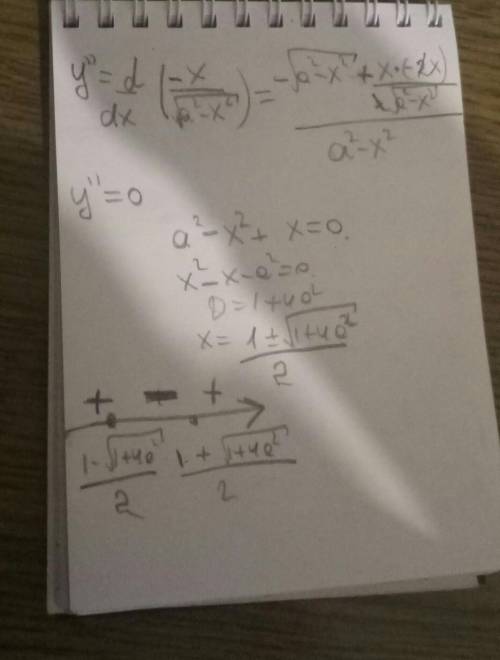 y'' = d/dx (-x/√(a²-x²)) = (-√(a²-x²) + x·(-2x)/(2√(a²-x²)))/(a²-x²)
y'' = 0
a² - x² + x = 0.
x² - x - a² = 0.
D = 1 + 4a²
x = (1 ± √(1+4a²))/2
+ - +
(1-√(1+4a²))/2 (1+√(1+4a²))/2